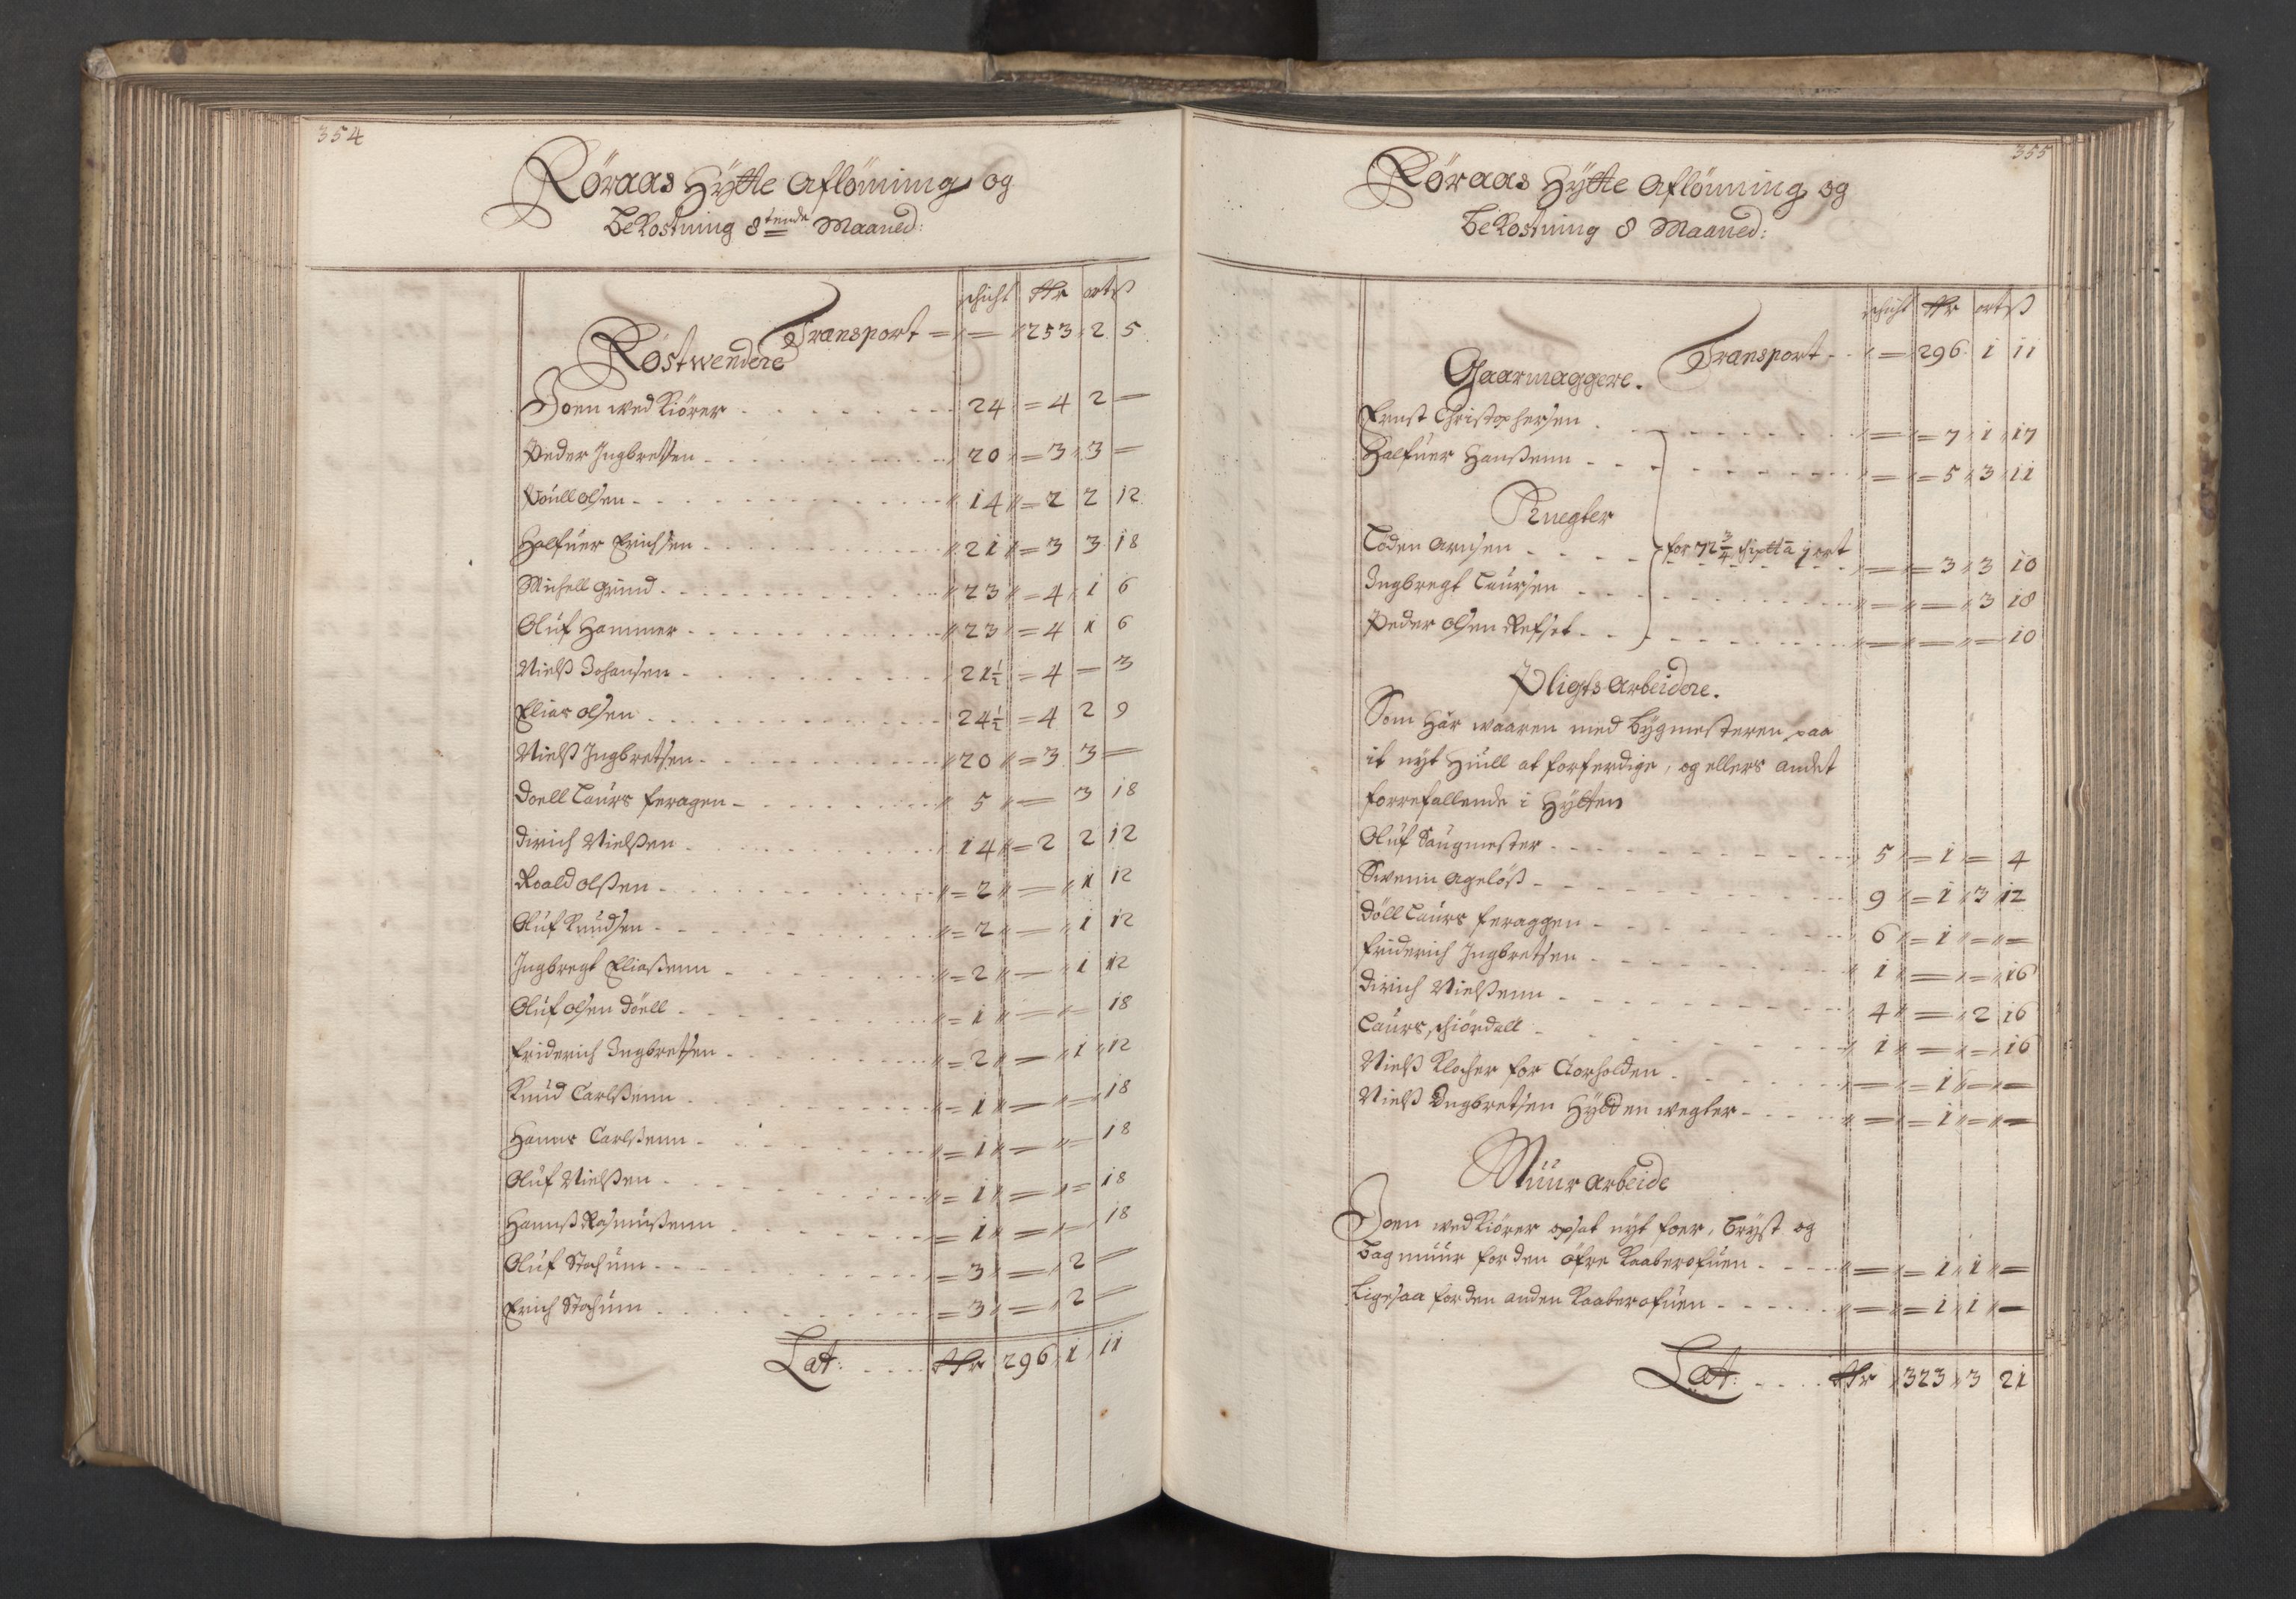 354
Röraas Hÿtte Aflönning og
Bekostning 8tende Maaned:
schicht Rdr ort ß
Transport = „ = „ 253 „ 2 5
Röstwendere
Joen wed Kiörer 24 = 4 2 —
Peder Ingbretsen 20 = 3 3 —
Pouell olsen 14 = 2 2 12
Halfuer Erichsen 21 = 3 3 18
Michell Grind 23 = 4 1 6
Oluf Hammer 23 = 4 1 6
Nielß Johansen 21½ = 4 — 3
Elias olsen 24½ = 4 2 9
Nielß Ingbretsen 20 = 3 3 —
Doell Laurs feragen 5 — 3 18
Dirich Nielßen 14 = 2 2 12
Roald olßen = 2 — 1 12
Oluf Knudsen = 2 — 1 12
Ingbregt Eliaßenn = 2 — 1 12
Oluf olsen Döell = 1 — — 18
friderich Ingbretsen = 2 — 1 12
Knud Carlßenn = 1 — — 18
Hanns Carlßenn = 1 — — 18
Oluf Nielßen = 1 — — 18
Hannß Rasmußenn = 1 — — 18
Oluf Stachum = 3 — 2 —
Erich Stachum = 3 — 2 —
Lat: Rdr 296 1 11
355
Röraas Hÿtte Aflönning og
Bekostning 8 Maaned:
schicht Rdr ort ß
Transport „ = 296 1 11
Gaarmaggere.
Ernst Christophersen — = 7 1 17
Halfuer Hanßenn — = 5 3 11
Knegter
Töden Arnsen for 72¾ skptt a 1 ort — = 3 3 10
Ingbregt Laursen — — 3 18
Peder olsen Refset — — — 10
Pligts Arbeidere.
Som här waaren med Bÿgmesteren paa
it nÿt Hiull at forferdige, og ellers andet
forrefallende i Hÿtten
Oluf Saugmester 5 = 1 = 4
Swenn Ageløß 9 = 1 3 12
Döll Laurs feraggen 6 = 1 — —
friderich Ingbretsen 1 — — 16
Dirich Nielßenn 4 — 2 16
Laurs schiördall 1 — — 16
Nielß Klocher for Clocholden — = 1 — —
Nielß Ingbretsen Hÿdden wegter — = 1 — —
Muur Arbeide
Joen wed Kiörer opsat nÿt foer, Brÿst og
Bagmuur for den öfre Kaaberofuen — = 1 1 —
Ligesaa for den anden Kaaberofuen — = 1 1 —
Lat: Rdr 323 3 21